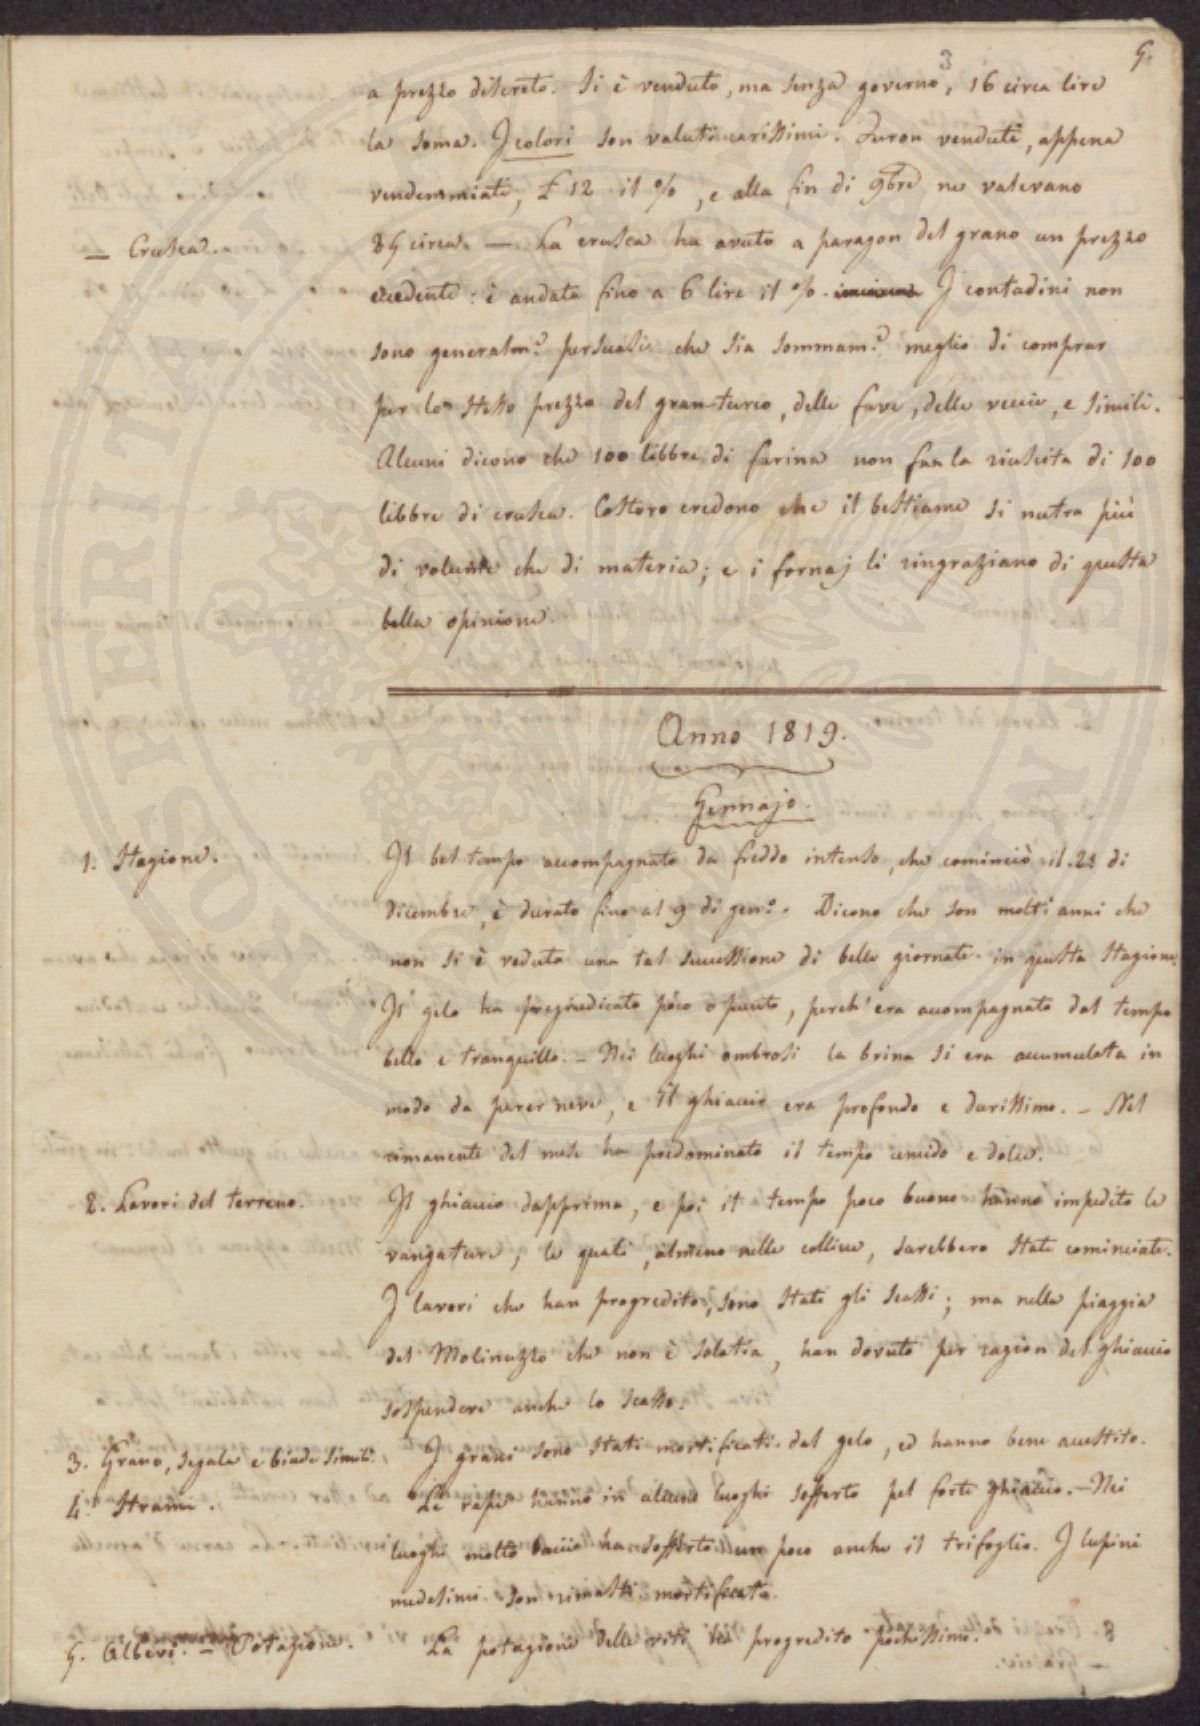 3
5.
a prezzo discreto. Si è venduto, ma senza governo, 16 circa lire
la soma. I colori son valuti carissimi. Furon venduti, appena
vendemmiati, £ 12 il %, e alla fin di 9bre ne valevano
25 circa. — La crusca ha avuto a paragon del grano un prezzo
— Crusca.
eccedente: è andata fino a 6 lire il %. I contadini non
sono generalme. persuasi che sia sommame. meglio di comprar
per lo stesso prezzo del gran-turco, delle fave, delle veccie, e simili.
Alcuni dicono che 100 libbre di farina non fan la riuscita di 100
libbre di crusca. Costoro credono che il bestiame si nutra più
di volume che di materia; e i fornaj li ringraziano di questa
bella opinione.
Anno 1819.
Gennajo.
1. Stagione.
Il bel tempo accompagnato da freddo intenso, che cominciò il 21 di
Dicembre, è durato fino al 9 di genno. Dicono che son molti anni che
non si è veduta una tal successione di belle giornate in questa stagione.
Il gelo ha pregiudicato poco o punto, perch'era accompagnato dal tempo
bello e tranquillo. – Nei luoghi ombrosi la brina si era accumulata in
modo da parer neve, e il ghiaccio era profondo e durissimo. – Nel
rimanente del mese ha predominato il tempo umido e dolce.
2. Lavori del terreno.
Il ghiaccio dapprima, e poi il tempo poco buono hanno impedito le
vangature, le quali, almeno nelle colline, sarebbero state cominciate.
I lavori che han progredito, sono stati gli scassi; ma nella piaggia
del Molinuzzo che non è solatia, han dovuto per ragion del ghiaccio
sospendere anche lo scasso.
3. Grano, segale e biade simili.
I grani sono stati mortificati dal gelo, ed hanno bene accestito.
4. Strami.
Le rape hanno in alcuni luoghi sofferto pel forte ghiaccio. – Nei
luoghi molto bacio ha sofferto un poco anche il trifoglio. I lupini
medesimi son rimasti mortificati.
5. Alberi. – Potagione.
La potagione delle viti ha progredito pochissimo.